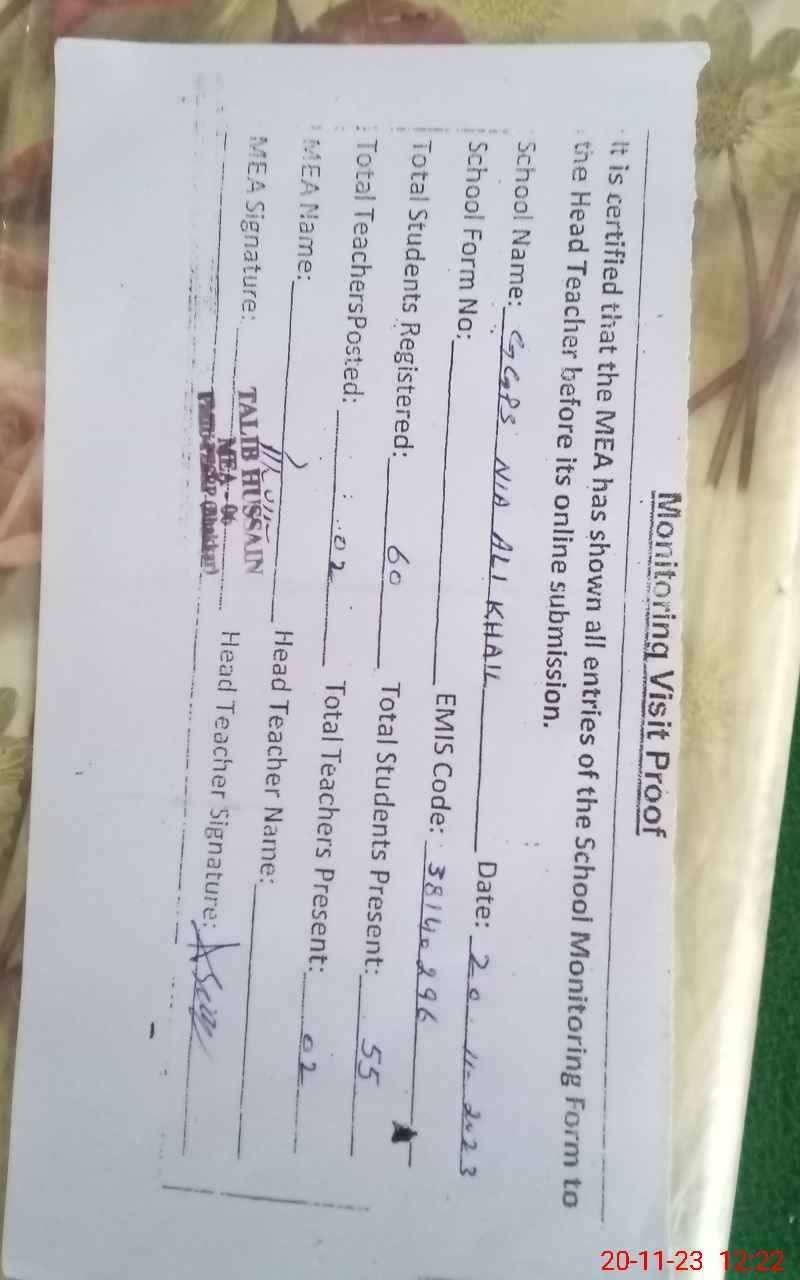 Monitoring Visit Proof
It is certified that the MEA has shown all entries of the School Monitoring Form to
the Head Teacher before its online submission.
School Name: GGPS NIA ALI KHAIL Date: 20.11.2023
School Form No: EMIS Code: 38140296
Total Students Registered: 60 Total Students Present: 55
Total TeachersPosted: 02 Total Teachers Present: 02
MEA Name: Head Teacher Name:
MEA Signature: Head Teacher Signature:
TALIB HUSSAIN
MEA - 06
(Bhakkar)
20-11-23 12:22